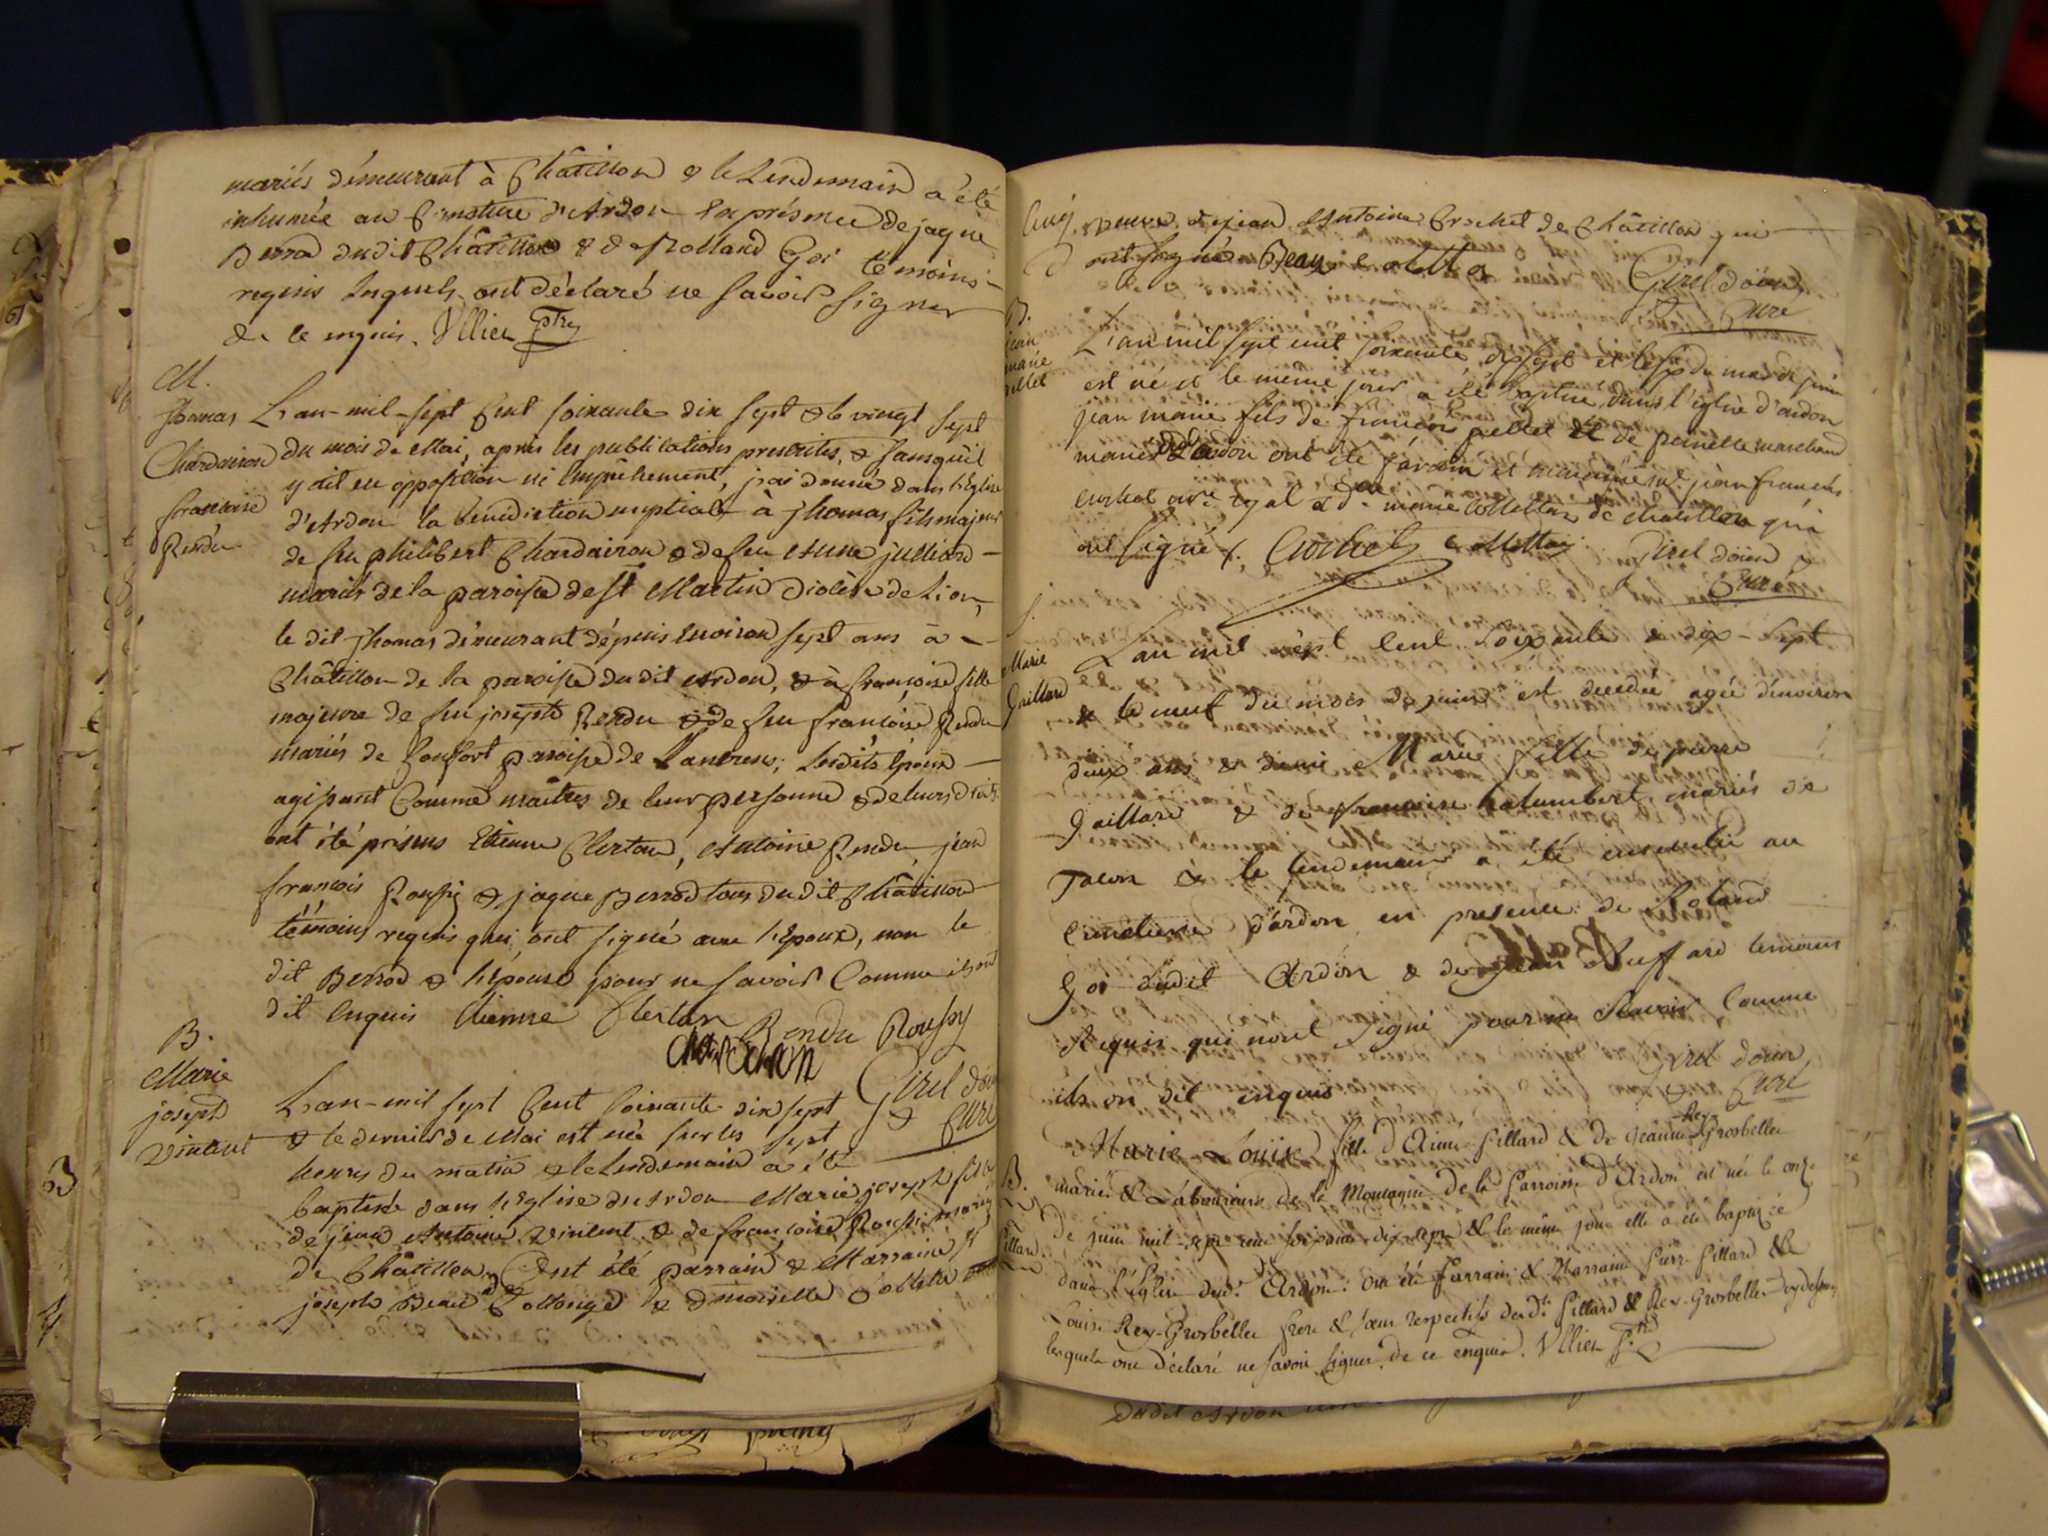 mariés démeurant à Châtillon & le Lendemain a été
inhumée au Cimetiere d'Ardon En présence de jaque
Perrod dudit Châtillon & de Rolland Goi témoins
requis lesquels ont déclaré ne savoir signer
de ce enquis. Ullier Ptre
M.
Thomas
Chardairon
francoise
Rendu
L'an-mil-sept Cent soixante dix sept & le vingt sept
du mois de Mai, après les publications prescrites, & sans qu'il
y ait eu opposition ni Empêchement, j'ai donné dans l'Eglise
d'Ardon la bénédiction nuptiale à thomas fils majeur
de feu philibert Chardairon & de feu Anne julliard
mariés de la paroisse de St Martin Diocèse de Lion,
le dit thomas démeurant dépuis Environ sept ans à
Châtillon de la paroisse du dit Ardon, & à francoise fille
majeure de feu joseph Rendu & de feu francoise Rendu
mariés de Confort paroisse de Lancrens; lesdits Epoux
agissant Comme maîtres de leur personne & de leurs droits
ont été présens Etienne Clertan, Antoine Rendu, jean
francois Roussy & jaque Perrod tous du dit Châtillon
témoins requis qui ont signé avec l'Epoux, non le
dit Perrod & l'épouse pour ne savoir Comme ils ont
dit Enquis Etienne Clertan Rendu Roussy
Girel doien
& Curé
B.
Marie
joseph
Vincent
L'an-mil sept Cent soixante dix sept
& le dernier de Mai est née sur les sept
heures du matin & le Lendemain a été
baptisée dans l'Eglise d'Ardon Marie joseph fille
de jean Antoine Vincent & de françoise Roussi mariés
de Châtillon, Ont été parrain & Marraine Sr
joseph Beau de Collonge & demoiselle Collette
veuve de jean Antoine Crochet de Châtillon qui
ont signé Beau Collette
Girel doien
& Curé
B.
jean
marie
pillet
L'an mil sept cent soixante dix sept et le six du mois de juin
est né et le meme jour a été baptisé dans l'église d'ardon
jean marie fils de francois pillet et de pernette marchand
mariés d'ardon ont été parain et maraine Sr jean francois
crochet avocat & de marie Collettaz de chatillon qui
ont signé. Crochet Collettaz Girel doien
& Curé
S.
Marie
Gaillard
L'an mil sept Cent soixante & dix-sept
& le neuf du mois de juin est decedée agée d'environ
deux ans & demi Marie fille de pierre
Gaillard & de francoise mariés de
Tacon & le lendemain a été ensevelie au
Cimetiere d'ardon en presence de Roland
Goi dudit Ardon & de jean Buffard temoins
Requis qui n'ont signé pour ne scavoir Comme
ils on dit enquis
Girel doien
& Curé
B.
pillard
Marie-Louise fille d'Aimé Pillard & de Jeanne Rey Grosbellet
mariés & Laboureurs de la Montagne de la Parroisse d'Ardon est née le onze
de juin mil-sept cent soixante dix sept & le même jour elle a été baptisée
dans l'Eglise dud. Ardon: Ont été Parrain & Marraine Pierre Pillard &
Louise Rey-Grosbellet frere & soeur respectifs desdts Pillard & Rey-Grosbellet
lesquels ont déclaré ne savoir signer de ce enquis. Ullier Ptre
dudit Ardon